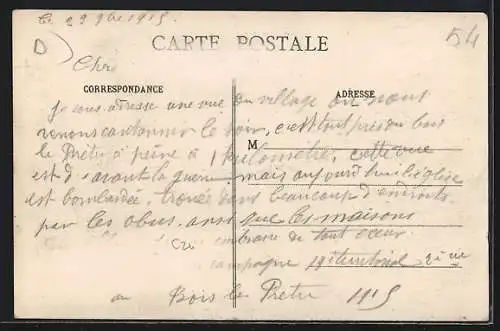 Le 29 9bre 1915
54
D
CARTE POSTALE
CORRESPONDANCE
ADRESSE
M
Je vous adresse une vue du village où nous
venons cantonner le soir, c'est tout près du bois
le Prêtre à peine à 1 kilomètre, cette vue
est d'avant la guerre mais aujourd'hui l'église
est bombardée, trouée dans beaucoup d'endroits
par les obus, ainsi que les maisons
embrasse de tout cœur
campagne 19e territorial
au Bois le Prêtre 1915